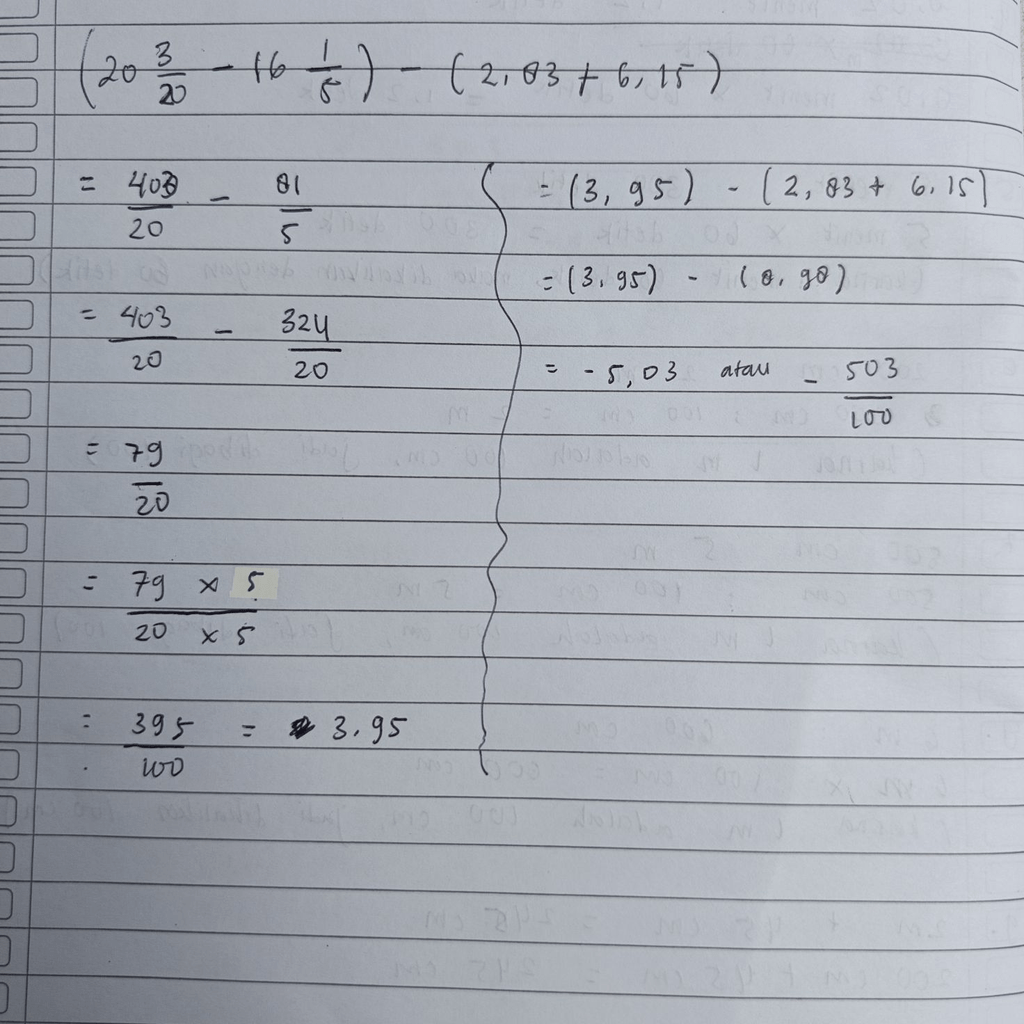 (20 3/20 - 16 1/5) - (2,83 + 6,15)
= 403/20 - 81/5
= 403/20 - 324/20
= 79/20
= 79 x 5/20 x 5
= 395/100 = 3.95
= (3,95) - (2,83 + 6.15)
= (3.95) - (8,98)
= -5,03 atau - 503/100